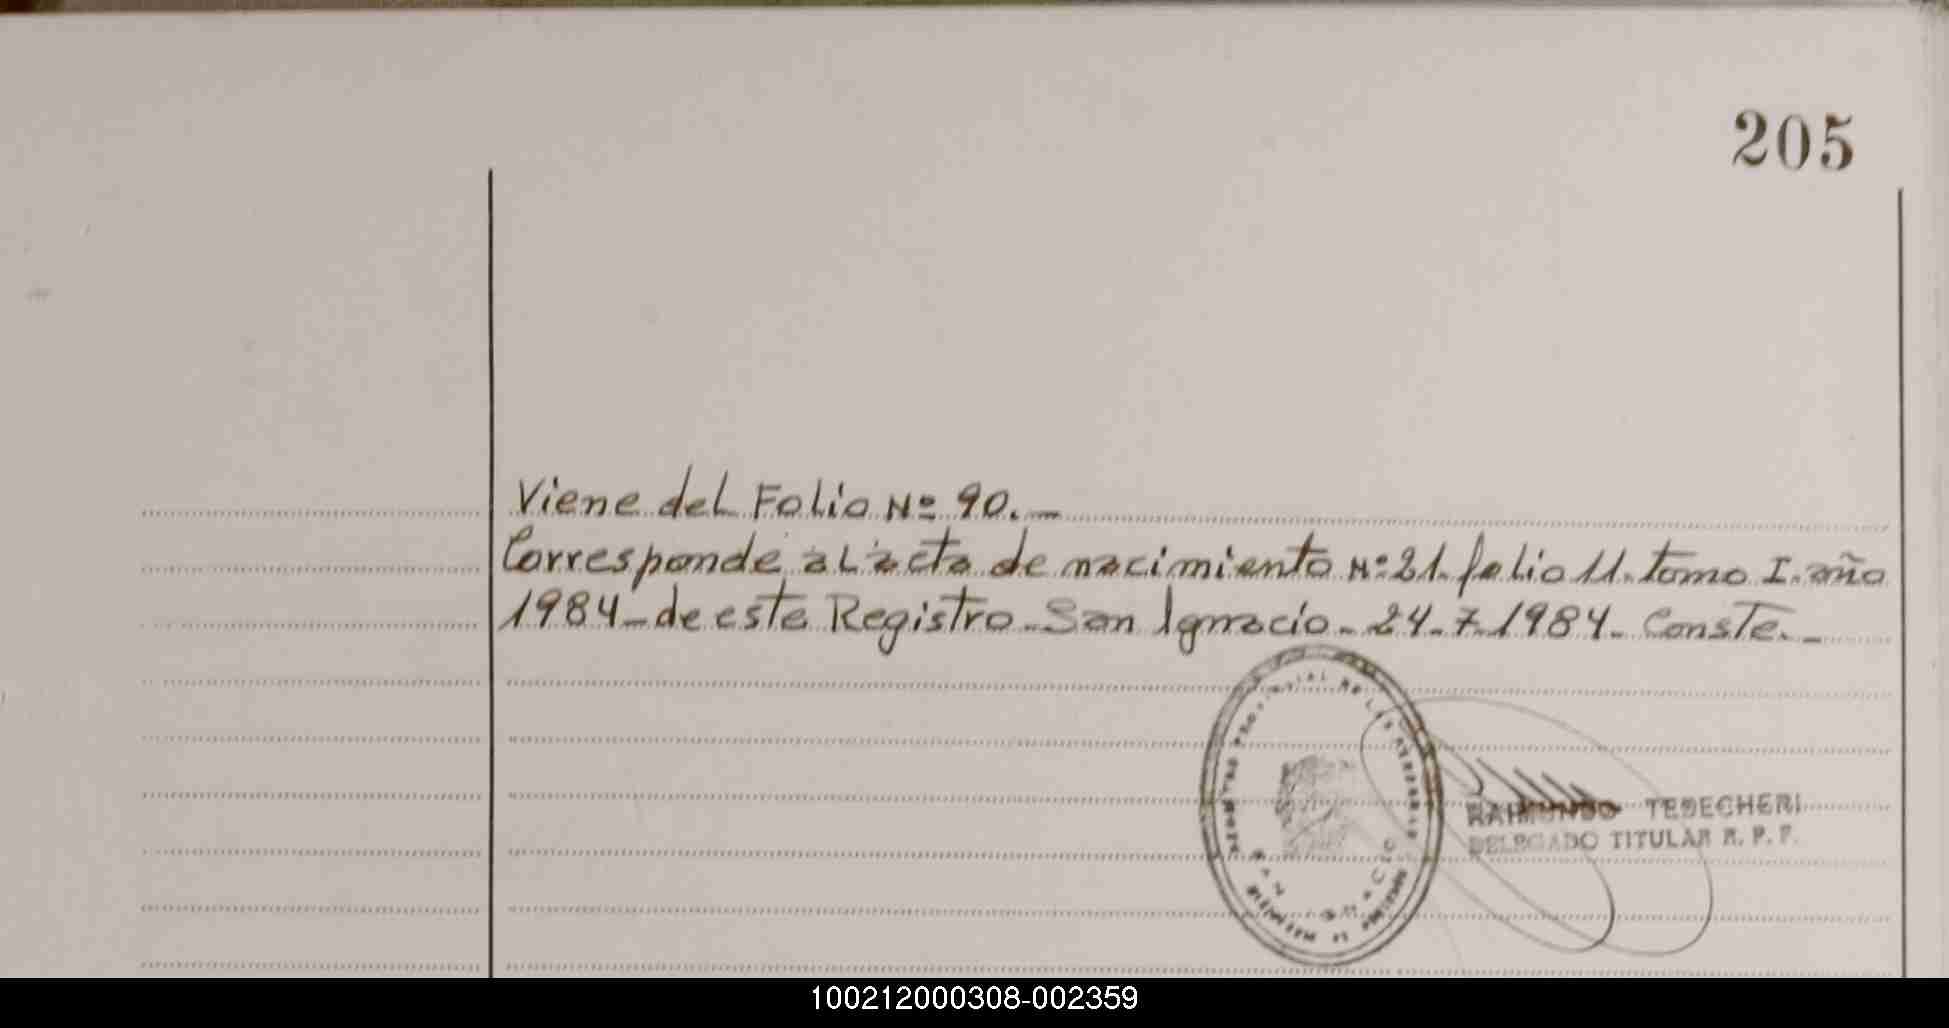 205
Viene del Folio Nº 90.-
Corresponde al acta de nacimiento Nº 21. folio 11. tomo I. año
1984 - de este Registro - San Ignacio - 24-7-1984 - Conste.-
SAN IGNACIO
RAIMUNDO TEBECHERI
DELEGADO TITULAR R. P. P.
100212000308-002359